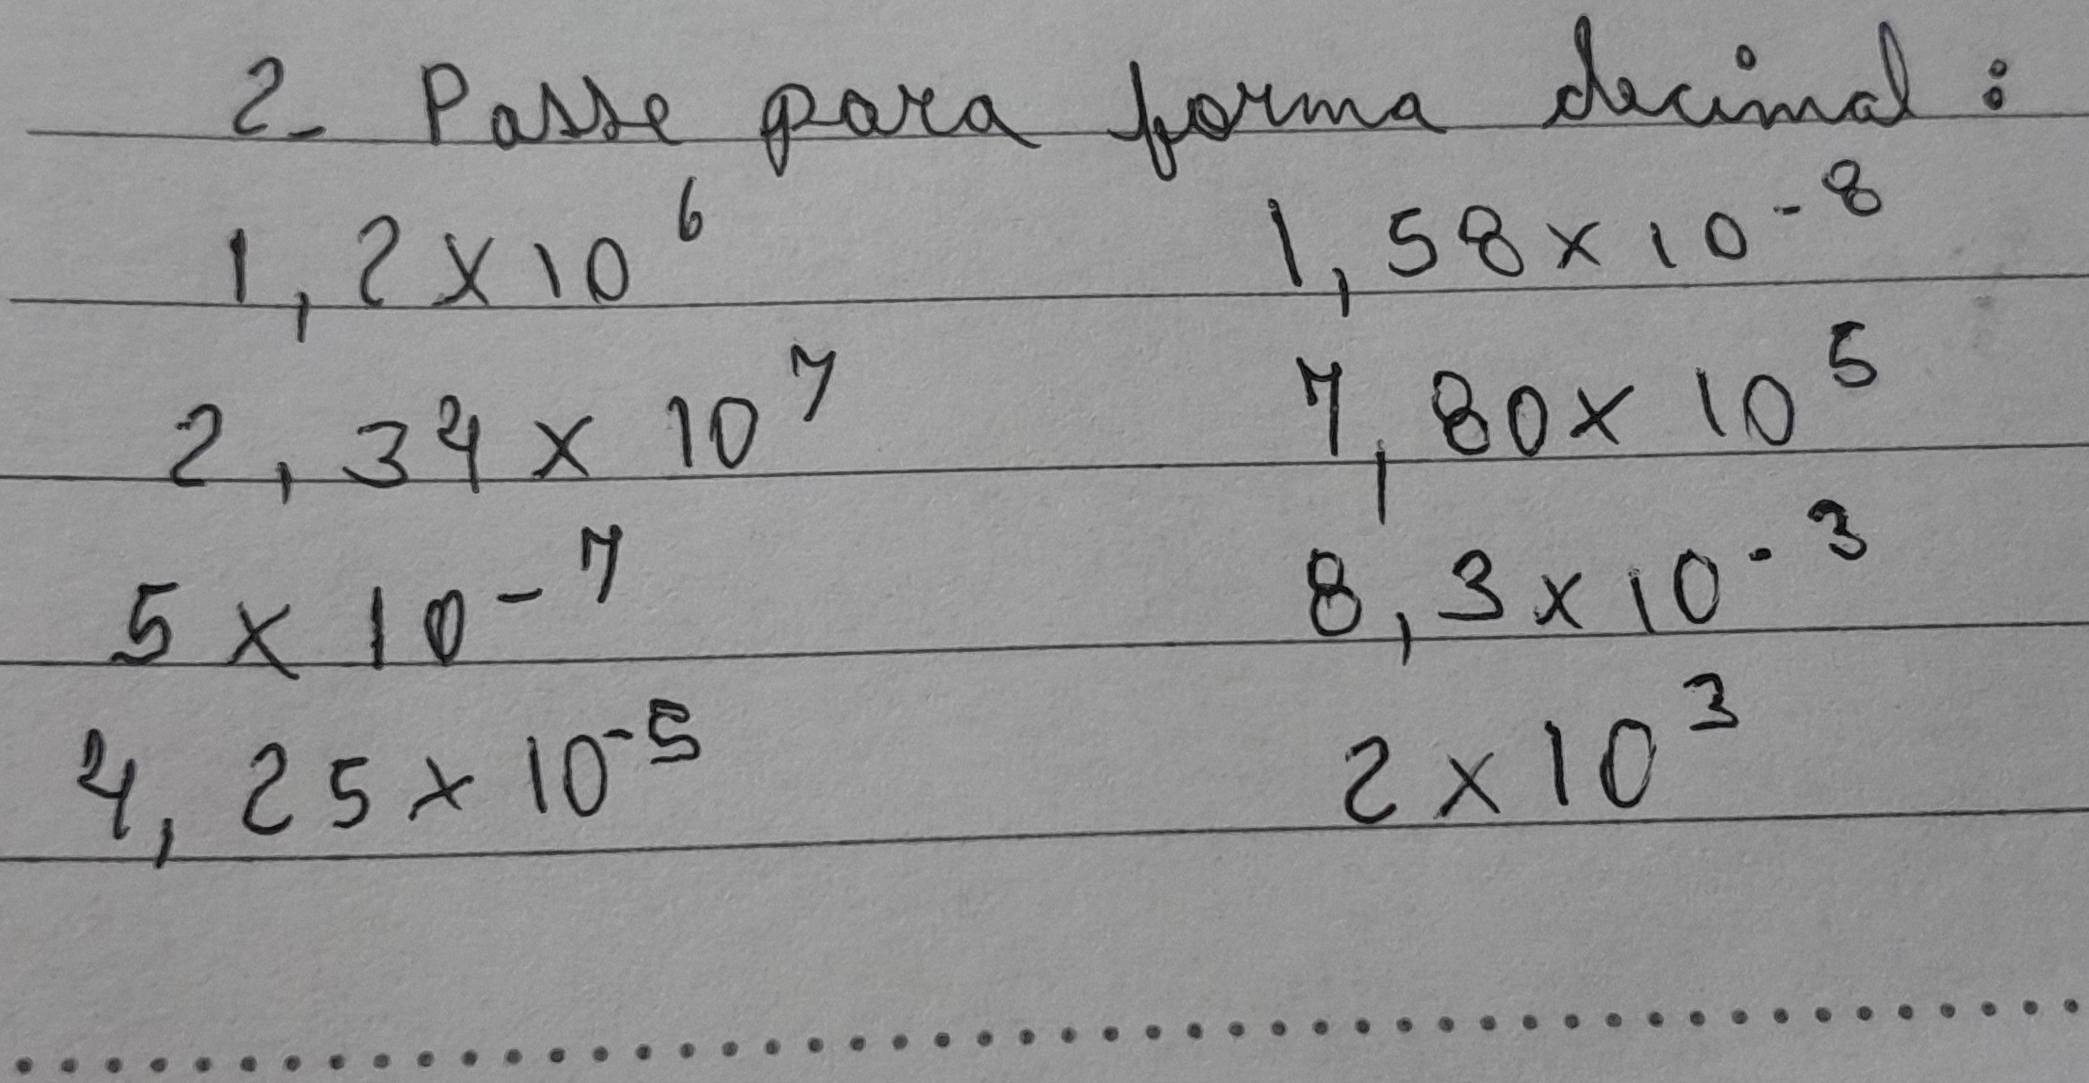 2- Passe para forma decimal:
1,2x10⁶ 1,58x10⁻⁸
2,34x10⁷ 7,80x10⁵
5x10⁻⁷ 8,3x10⁻³
4,25x10⁻⁵ 2x10³